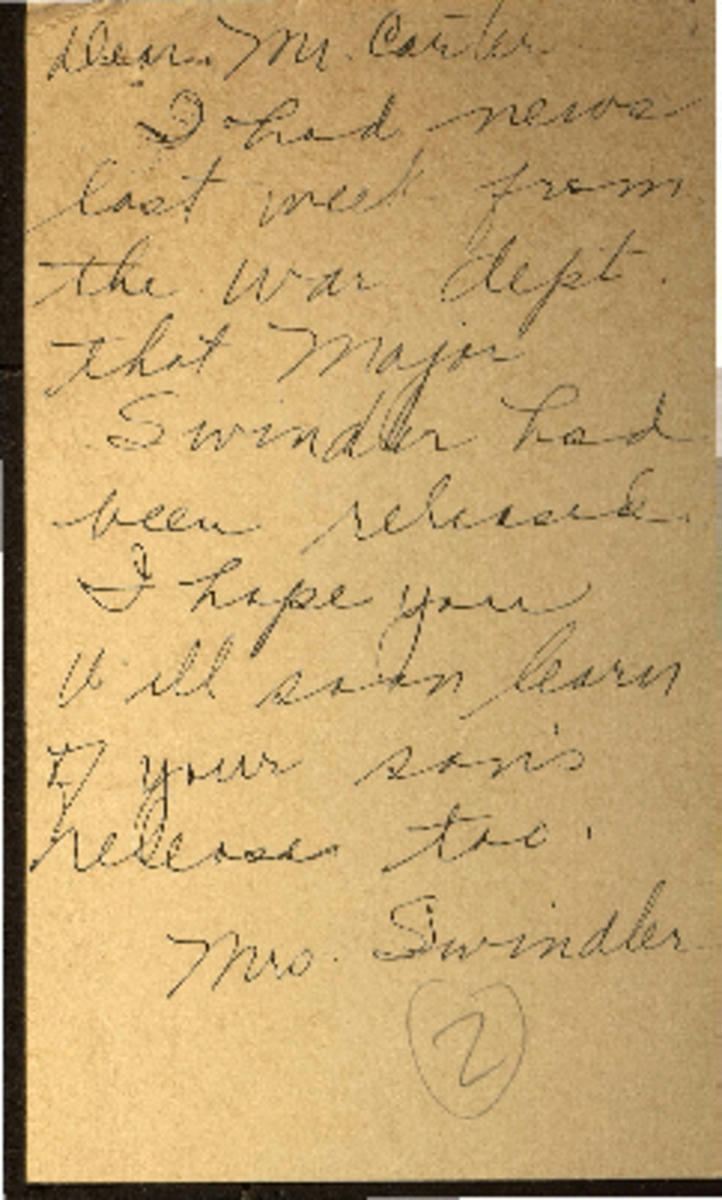 Dear Mr. Carter
I had news
last week from
the war dept.
that Major
Swindler had
been released.
I hope you
will soon learn
of your son's
release too.
Mrs. Swindler
2